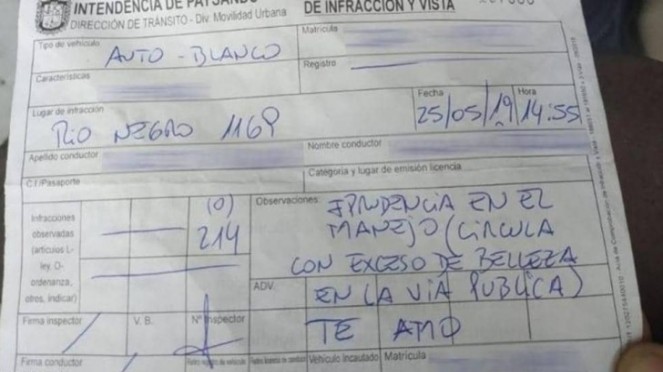 INTENDENCIA DE PAYSANDÚ
DIRECCIÓN DE TRÁNSITO - Div. Movilidad Urbana
DE INFRACCIÓN Y VISTA
Tipo de vehículo
AUTO - BLANCO
Matrícula
Características
Registro
Lugar de infracción
RIO NEGRO 1169
Fecha
25/05/19
Hora
14:55
Apellido conductor
Nombre conductor
C.I/Pasaporte
Categoría y lugar de emisión licencia
Infracciones
observadas
(artículos L-
ley, O-
ordenanza,
otros, indicar)
(0)
214
Observaciones:
IPRUDENCIA EN EL
MANEJO (CIRCULA
CON EXCESO DE BELLEZA
ADV.
EN LA VIA PUBLICA)
TE AMO
Firma inspector
V. B.
Nº Inspector
Firma conductor
Vehículo incautado
Matrícula